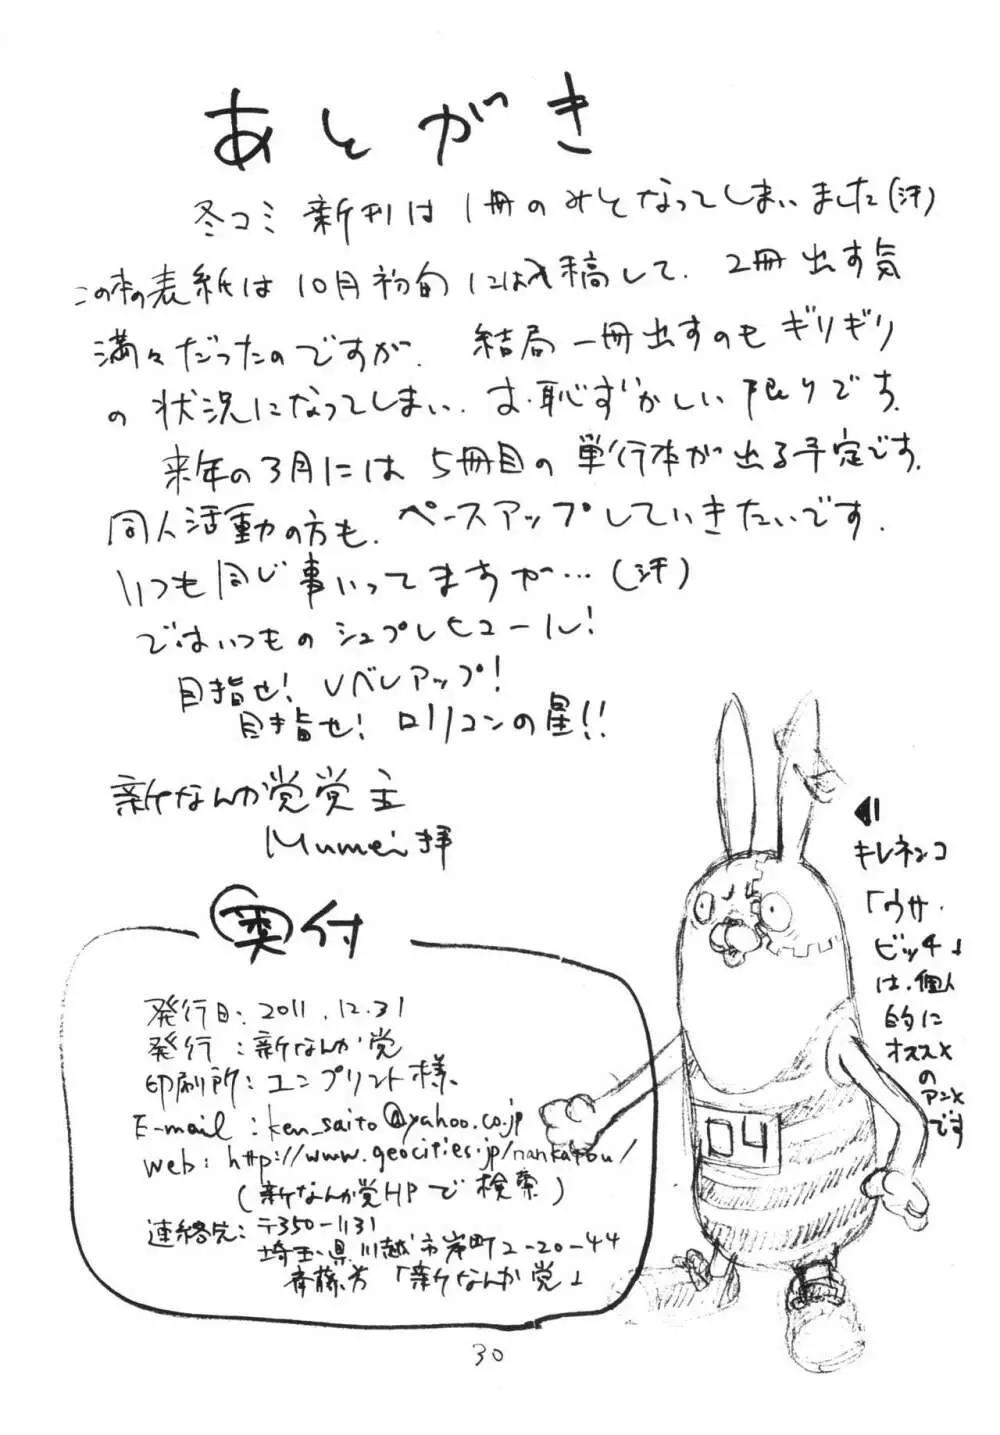 あとがき
冬コミ新刊は1冊のみとなってしまいました(汗)
この本の表紙は10月初旬には入稿して、2冊出す気
満々だったのですが、結局一冊出すのもギリギリ
の状況になってしまい、お恥ずかしい限りです。
来年の3月には5冊目の単行本が出る予定です。
同人活動の方も、ペースアップしていきたいです。
いつも同じ事いってますが…(汗)
ではいつものシュプレヒコール!
目指せ!レベルアップ!
目指せ!ロリコンの星!!
新なんか党党主
Mumei拝
キレネンコ
「ウサ・
ビッチ」
は、個人
的に
オススメ
の
アニメ
です
04
奥付
発行日:2011.12.31
発行:新なんか党
印刷所:ユニプリント様
E-mail:ken_saito@yahoo.co.jp
web:http://www.geocities.jp/nankatou/
(新なんか党HPで検索)
連絡先:〒350-1131
埼玉県川越市岸町2-20-44
斉藤方「新なんか党」
30